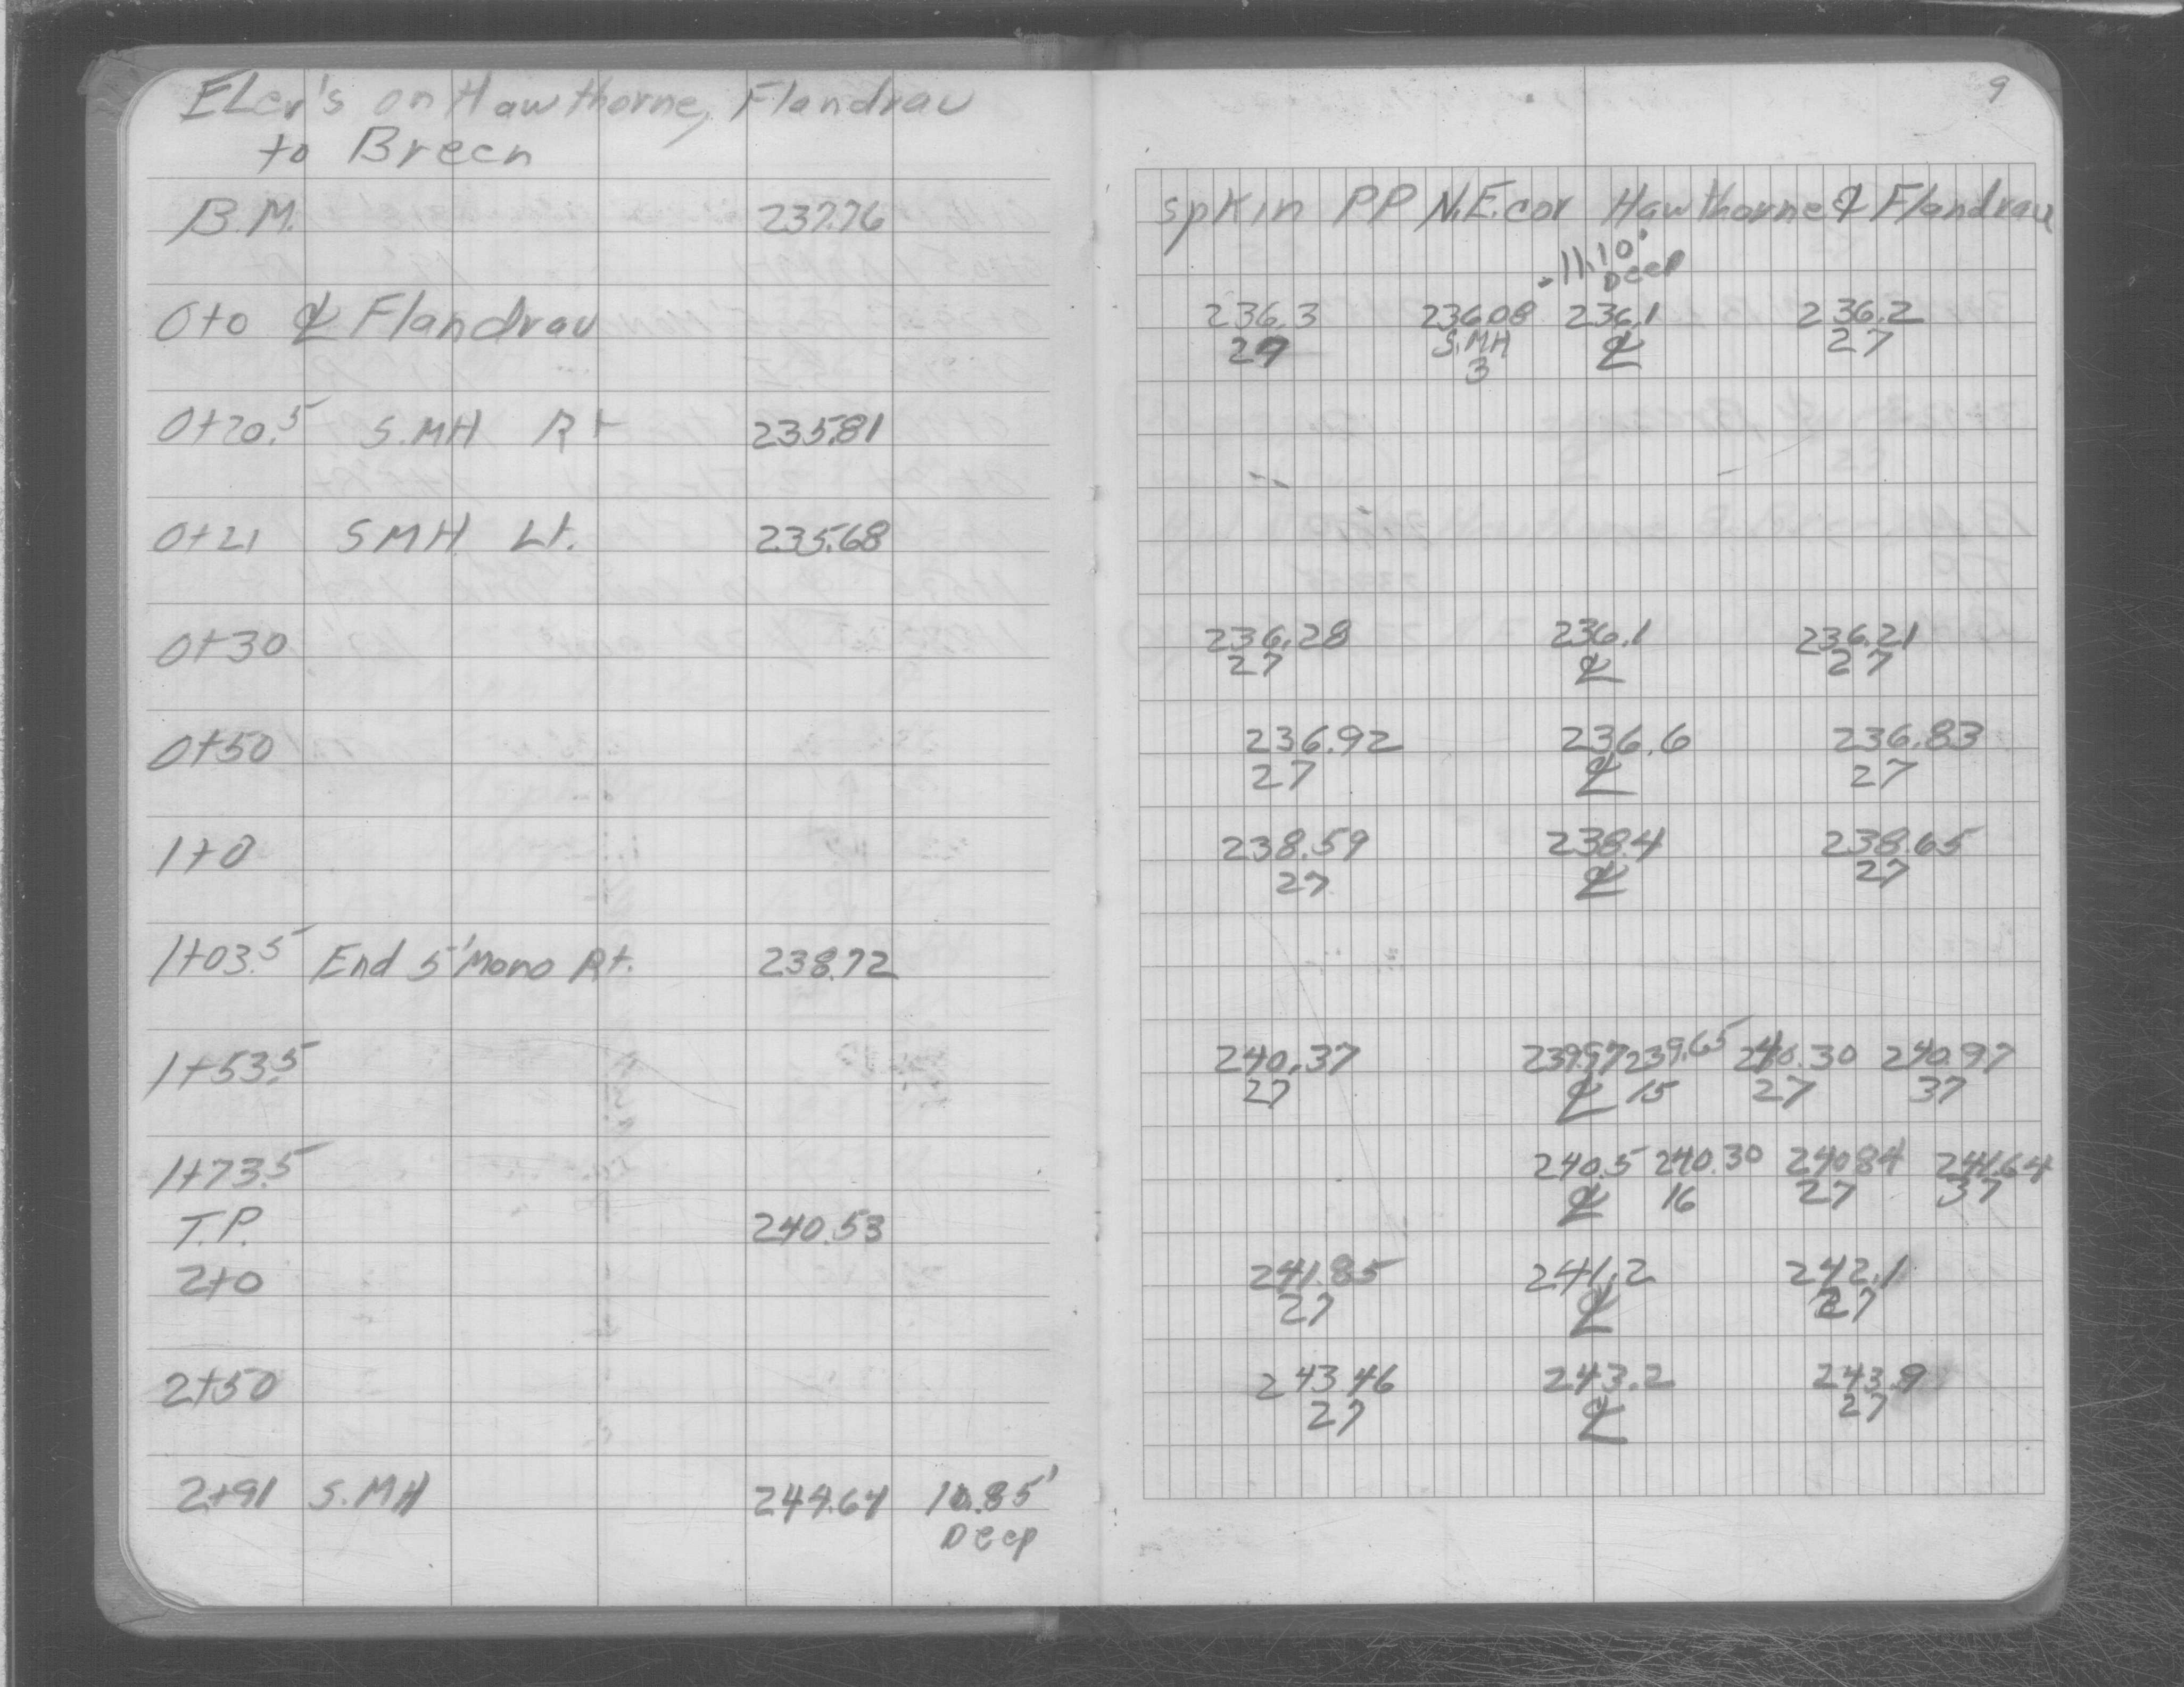 ELev's on Hawthorne, Flandrau
to Breen
9
B.M. 237.76 spk in PP N.E. cor Hawthorne & Flandrau
-11.10' Deep
0+0 ℄ Flandrau 236.3 236.08 236.1 236.2
29 S.MH ℄ 27
3
0+20.5 S.MH Rt 235.81
0+21 SMH Lt. 235.68
0+30 236.28 236.1 236.21
27 ℄ 27
0+50 236.92 236.6 236.83
27 ℄ 27
1+0 238.59 238.4 238.65
27 ℄ 27
1+03.5 End 5' Mono Rt. 238.72
1+53.5 240.37 239.97 239.65 240.30 240.97
27 ℄ 15 27 37
1+73.5 240.5 240.30 240.84 241.64
℄ 16 27 37
T.P. 240.53
2+0 241.85 241.2 242.1
27 ℄ 27
2+50 243.46 243.2 243.9
27 ℄ 27
2+91 S.MH 244.64 10.85'
Deep